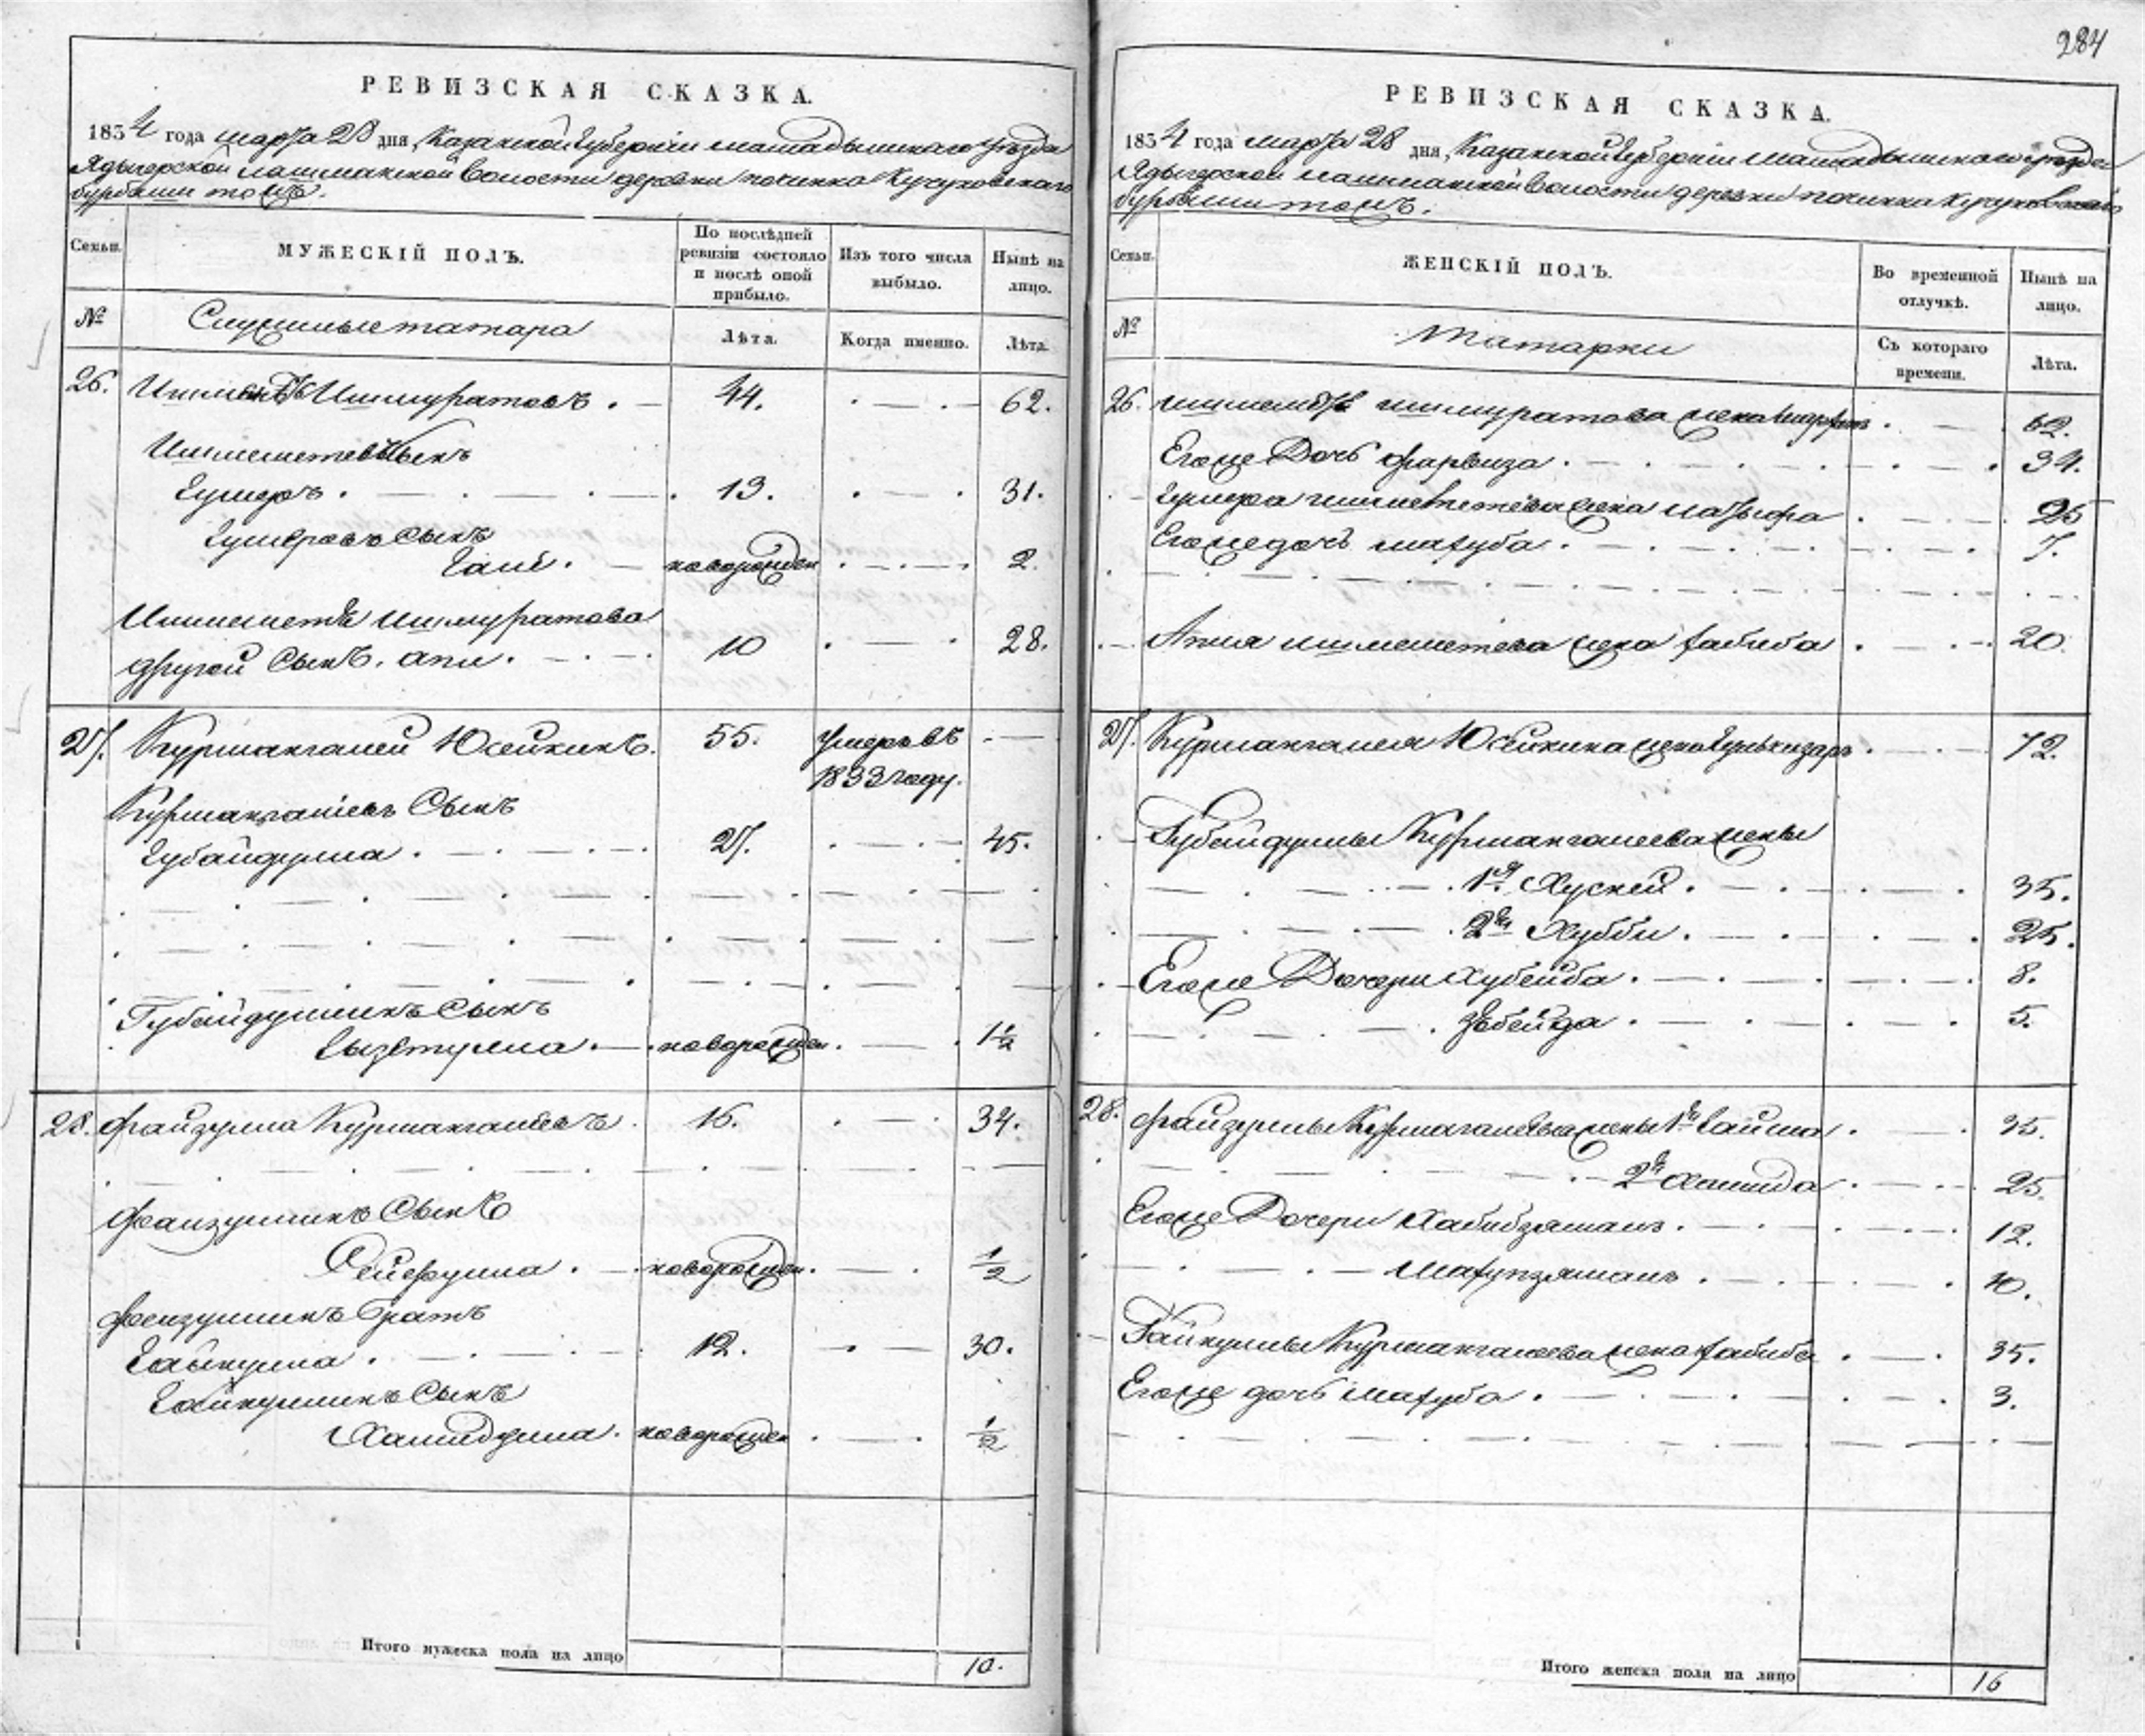 284
РЕВИЗСКАЯ СКАЗКА.
1834 года марта 28 дня, Казанской Губерніи мамадышскаго уѣзда
Ядыгерской лашманской волости деревни починка Кучуковскаго
бурбаши тожъ.
Семьи.
МУЖЕСКІЙ ПОЛЪ.
По послѣдней
ревизіи состояло
и послѣ оной
прибыло.
Изъ того числа
выбыло.
Нынѣ на
лицо.
№
Служилые татара
Лѣта.
Когда именно.
Лѣта.
26. Ишмуратовъ. 44. 62.
Ишмеметевъ Сынъ
Гумеръ. 13. 31.
Гумеровъ Сынъ
Гали. новорожден 2.
Ишмеметя Ишмуратова
другой Сынъ. апи. 10 28.
27. Курмангалей Юсейкинъ. 55. Умеръ въ
1833 году.
Курмангалѣевъ Сынъ
Губайдулла. 27. 45.
Губайдуллинъ Сынъ
новорожден. 1½
28. Файзулла Курмангалѣевъ. 16. 34.
Файзуллинъ Сынъ
Сейфулла. новорожден. ½
Файзуллинъ братъ
Гайнулла. 12. 30.
Гайнуллинъ Сынъ
Хамидулла. новорожден. ½
Итого мужеска пола на лицо 10.
РЕВИЗСКАЯ СКАЗКА.
1834 года марта 28 дня, Казанской Губерніи мамадышскаго уѣзда
Ядыгерской лашманской волости деревни починка Кучуковскаго
бурбаши тожъ.
Семьи.
ЖЕНСКІЙ ПОЛЪ.
Во временной
отлучкѣ.
Нынѣ на
лицо.
№
Татарки
Съ котораго
времени.
Лѣта.
26. Ишмеметя ишмуратова жена 62.
Егоже Дочь фарвиза. 34.
Гумера ишмеметева жена 25
Егоже дочь махуба. 7.
Апия ишмеметева жена хабиба. 20.
27. Курмангалея Юсейкина жена 72.
Губайдуллы Курмангалеева жены
1я Хусней. 35.
2я Хубби. 25.
Егоже Дочери Хубейба. 8.
Зюбейда. 5.
28. Файзуллы Курмангалѣева жены 1я Гайша. 35.
2я Хамида. 25.
Егоже Дочери Хабибзямалъ. 12.
Махупзямалъ. 10.
Гайнуллы Курмангалеева жена хабиба. 35.
Егоже дочь махуба. 3.
Итого женска пола на лицо 16